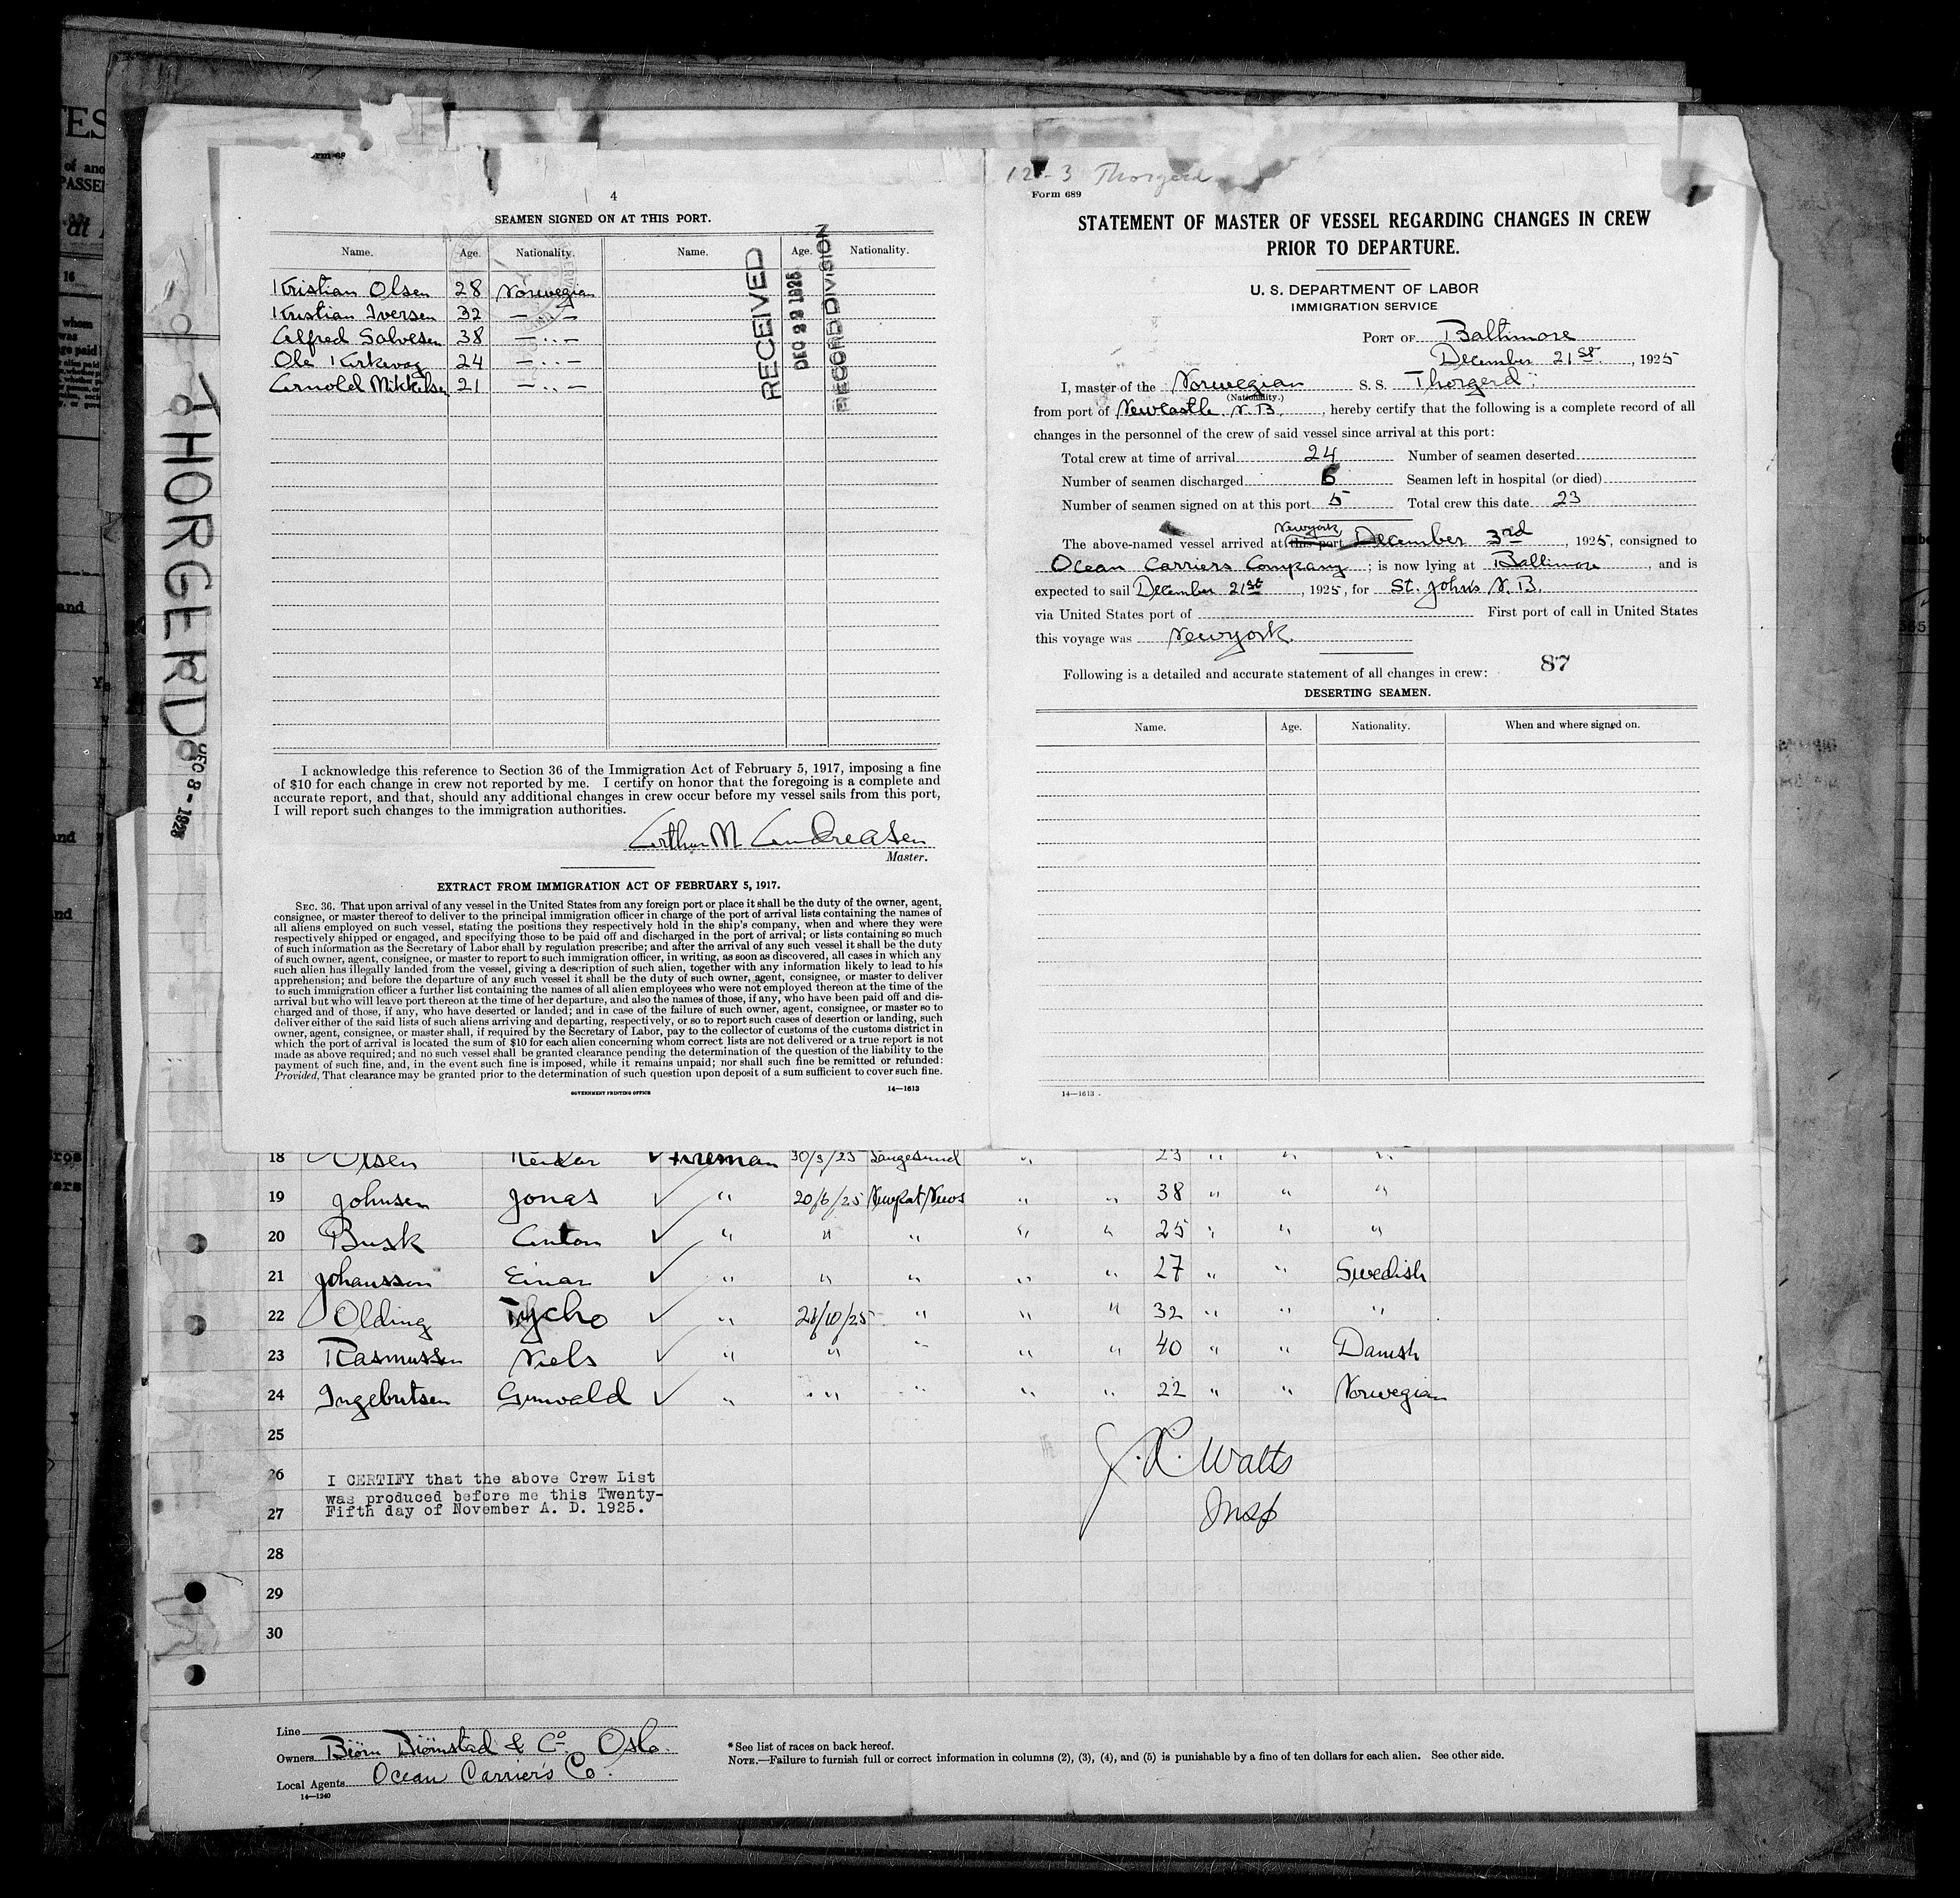 4
SEAMEN SIGNED ON AT THIS PORT.
Name. Age. Nationality. Name. Age. Nationality.
Kristian Olsen 28 Norwegian
Kristian Iversen 32 — .. —
Alfred Salvesen 38 — .. —
Ole Kirkevog 24 — .. —
Arnold Mikkelsen 21 — .. —
RECEIVED
DEC 22 1925
RECORD DIVISION
I acknowledge this reference to Section 36 of the Immigration Act of February 5, 1917, imposing a fine
of $10 for each change in crew not reported by me. I certify on honor that the foregoing is a complete and
accurate report, and that, should any additional changes in crew occur before my vessel sails from this port,
I will report such changes to the immigration authorities.
Arthur M Andreasen
Master.
EXTRACT FROM IMMIGRATION ACT OF FEBRUARY 5, 1917.
SEC. 36. That upon arrival of any vessel in the United States from any foreign port or place it shall be the duty of the owner, agent,
consignee, or master thereof to deliver to the principal immigration officer in charge of the port of arrival lists containing the names of
all aliens employed on such vessel, stating the positions they respectively hold in the ship's company, when and where they were
respectively shipped or engaged, and specifying those to be paid off and discharged in the port of arrival; or lists containing so much
of such information as the Secretary of Labor shall by regulation prescribe; and after the arrival of any such vessel it shall be the duty
of such owner, agent, consignee, or master to report to such immigration officer, in writing, as soon as discovered, all cases in which any
such alien has illegally landed from the vessel, giving a description of such alien, together with any information likely to lead to his
apprehension; and before the departure of any such vessel it shall be the duty of such owner, agent, consignee, or master to deliver
to such immigration officer a further list containing the names of all alien employees who were not employed thereon at the time of the
arrival but who will leave port thereon at the time of her departure, and also the names of those, if any, who have been paid off and dis-
charged and of those, if any, who have deserted or landed; and in case of the failure of such owner, agent, consignee, or master so to
deliver either of the said lists of such aliens arriving and departing, respectively, or so to report such cases of desertion or landing, such
owner, agent, consignee, or master shall, if required by the Secretary of Labor, pay to the collector of customs of the customs district in
which the port of arrival is located the sum of $10 for each alien concerning whom correct lists are not delivered or a true report is not
made as above required; and no such vessel shall be granted clearance pending the determination of the question of the liability to the
payment of such fine, and, in the event such fine is imposed, while it remains unpaid; nor shall such fine be remitted or refunded:
Provided, That clearance may be granted prior to the determination of such question upon deposit of a sum sufficient to cover such fine.
GOVERNMENT PRINTING OFFICE 14—1613
THORGERD
DEC 8 - 1925
12-3 Thorgerd
Form 689
STATEMENT OF MASTER OF VESSEL REGARDING CHANGES IN CREW
PRIOR TO DEPARTURE.
U. S. DEPARTMENT OF LABOR
IMMIGRATION SERVICE
PORT OF Baltimore
December 21st, 1925
I, master of the Norwegian S. S. Thorgerd
(Nationality.)
from port of Newcastle N.B., hereby certify that the following is a complete record of all
changes in the personnel of the crew of said vessel since arrival at this port:
Total crew at time of arrival 24 Number of seamen deserted
Number of seamen discharged 6 Seamen left in hospital (or died)
Number of seamen signed on at this port 5 Total crew this date 23
Newyork
The above-named vessel arrived at this port December 3rd, 1925, consigned to
Ocean Carriers Company; is now lying at Baltimore, and is
expected to sail December 21st, 1925, for St. Johns N.B.
via United States port of First port of call in United States
this voyage was Newyork.
87
Following is a detailed and accurate statement of all changes in crew:
DESERTING SEAMEN.
Name. Age. Nationality. When and where signed on.
14—1613
18 Olsen Reidar ✓ Fireman 30/3/25 Langesund " 23 " " "
19 Johnsen Jonas ✓ " 20/6/25 Newport News " " 38 " " "
20 Busk Anton ✓ " " " " " 25 " " "
21 Johansson Einar ✓ " " " " " 27 " " Swedish
22 Olding Tycho ✓ " 28/10/25 " " " 32 " " "
23 Rasmussen Niels ✓ " " " " " 40 " " Danish
24 Ingebritsen Gunvald ✓ " " " " " 22 " " Norwegian
25
26
27
28
29
30
I CERTIFY that the above Crew List
was produced before me this Twenty-
Fifth day of November A. D. 1925.
Watts
Insp
Line
Owners Biörn Biörnstad & Co Oslo.
Local Agents Ocean Carriers Co.
14—1240
* See list of races on back hereof.
NOTE.—Failure to furnish full or correct information in columns (2), (3), (4), and (5) is punishable by a fine of ten dollars for each alien. See other side.